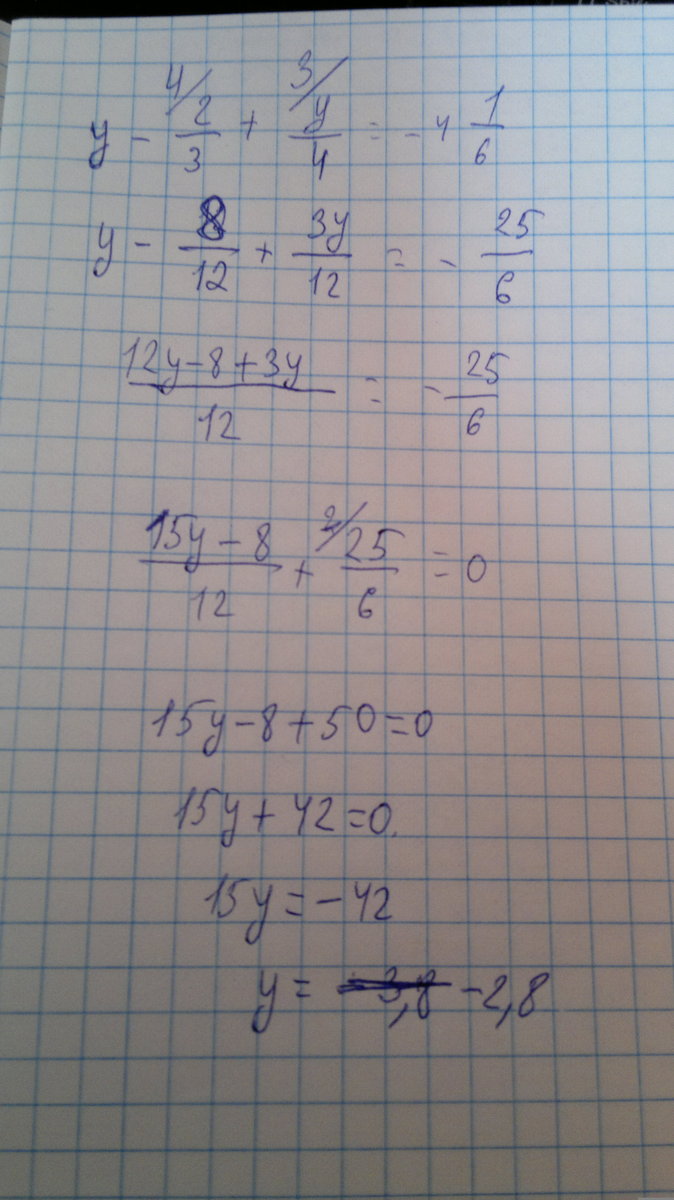 y - 4/ 2/3 + 3/ y/4 = -4 1/6
y - 8/12 + 3y/12 = - 25/6
(12y-8+3y)/12 = - 25/6
(15y-8)/12 + 2/ 25/6 = 0
15y-8+50=0
15y+42=0.
15y=-42
y= -3,8 -2,8